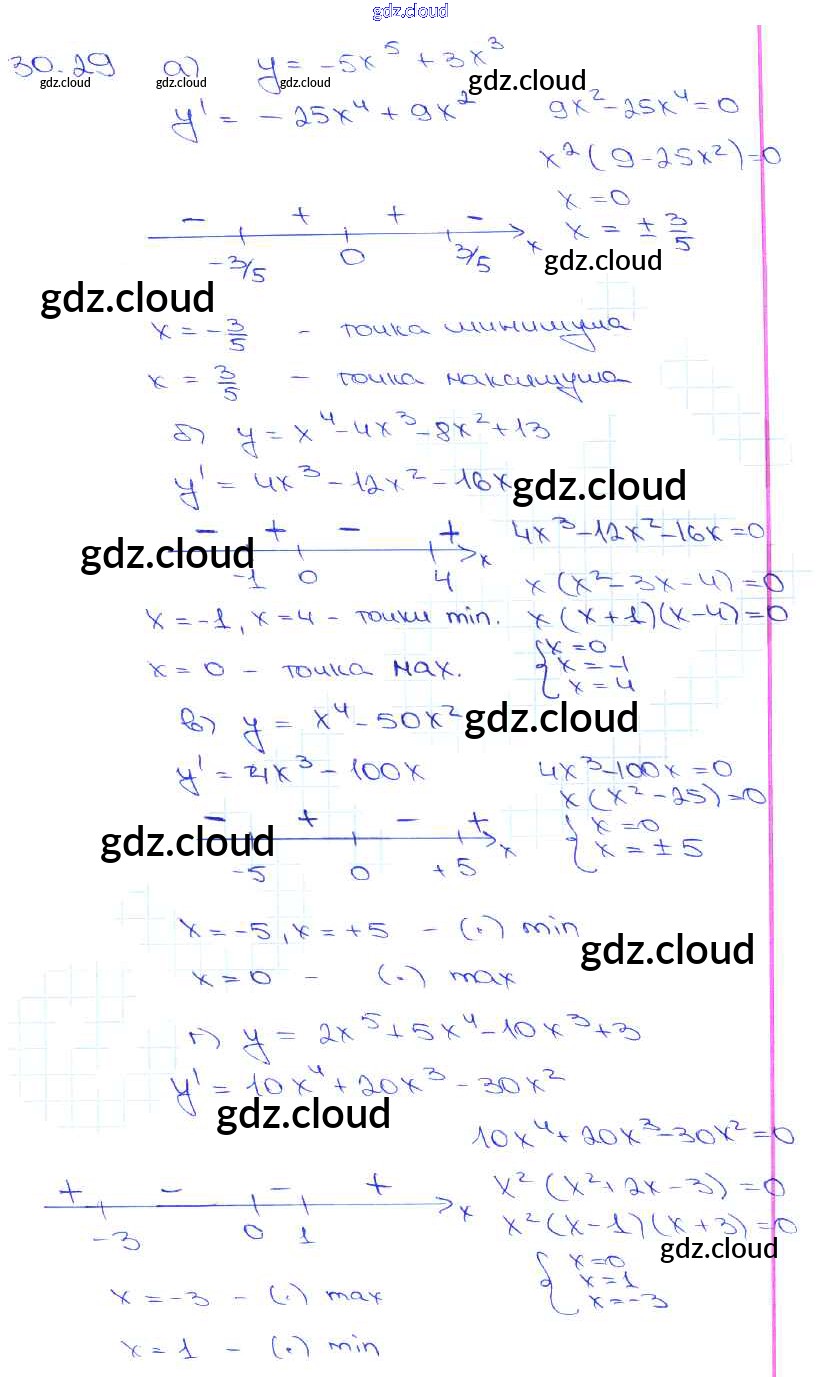 gdz.cloud
30.29 а) y = -5x⁵ + 3x³
gdz.cloud gdz.cloud gdz.cloud gdz.cloud
y' = -25x⁴ + 9x² 9x² - 25x⁴ = 0
x²(9 - 25x²) = 0
x = 0
- + + - x = ± 3/5
-3/5 0 3/5 x
gdz.cloud
gdz.cloud
x = -3/5 - точка минимума
x = 3/5 - точка максимума
б) y = x⁴ - 4x³ - 8x² + 13
y' = 4x³ - 12x² - 16x gdz.cloud
- + - + 4x³ - 12x² - 16x = 0
gdz.cloud
-1 0 4 x x(x² - 3x - 4) = 0
x = -1, x = 4 - точки min. x(x + 1)(x - 4) = 0
x = 0 - точка мах. { x = 0
x = -1
x = 4
в) y = x⁴ - 50x² gdz.cloud
y' = 4x³ - 100x 4x³ - 100x = 0
x(x² - 25) = 0
- + - + { x = 0
gdz.cloud x = ± 5
-5 0 +5 x
x = -5, x = +5 - (.) min
gdz.cloud
x = 0 - (.) max
г) y = 2x⁵ + 5x⁴ - 10x³ + 3
y' = 10x⁴ + 20x³ - 30x²
gdz.cloud
10x⁴ + 20x³ - 30x² = 0
+ - - + x²(x² + 2x - 3) = 0
-3 0 1 x x²(x - 1)(x + 3) = 0
gdz.cloud
{ x = 0
x = 1
x = -3
x = -3 - (.) max
x = 1 - (.) min